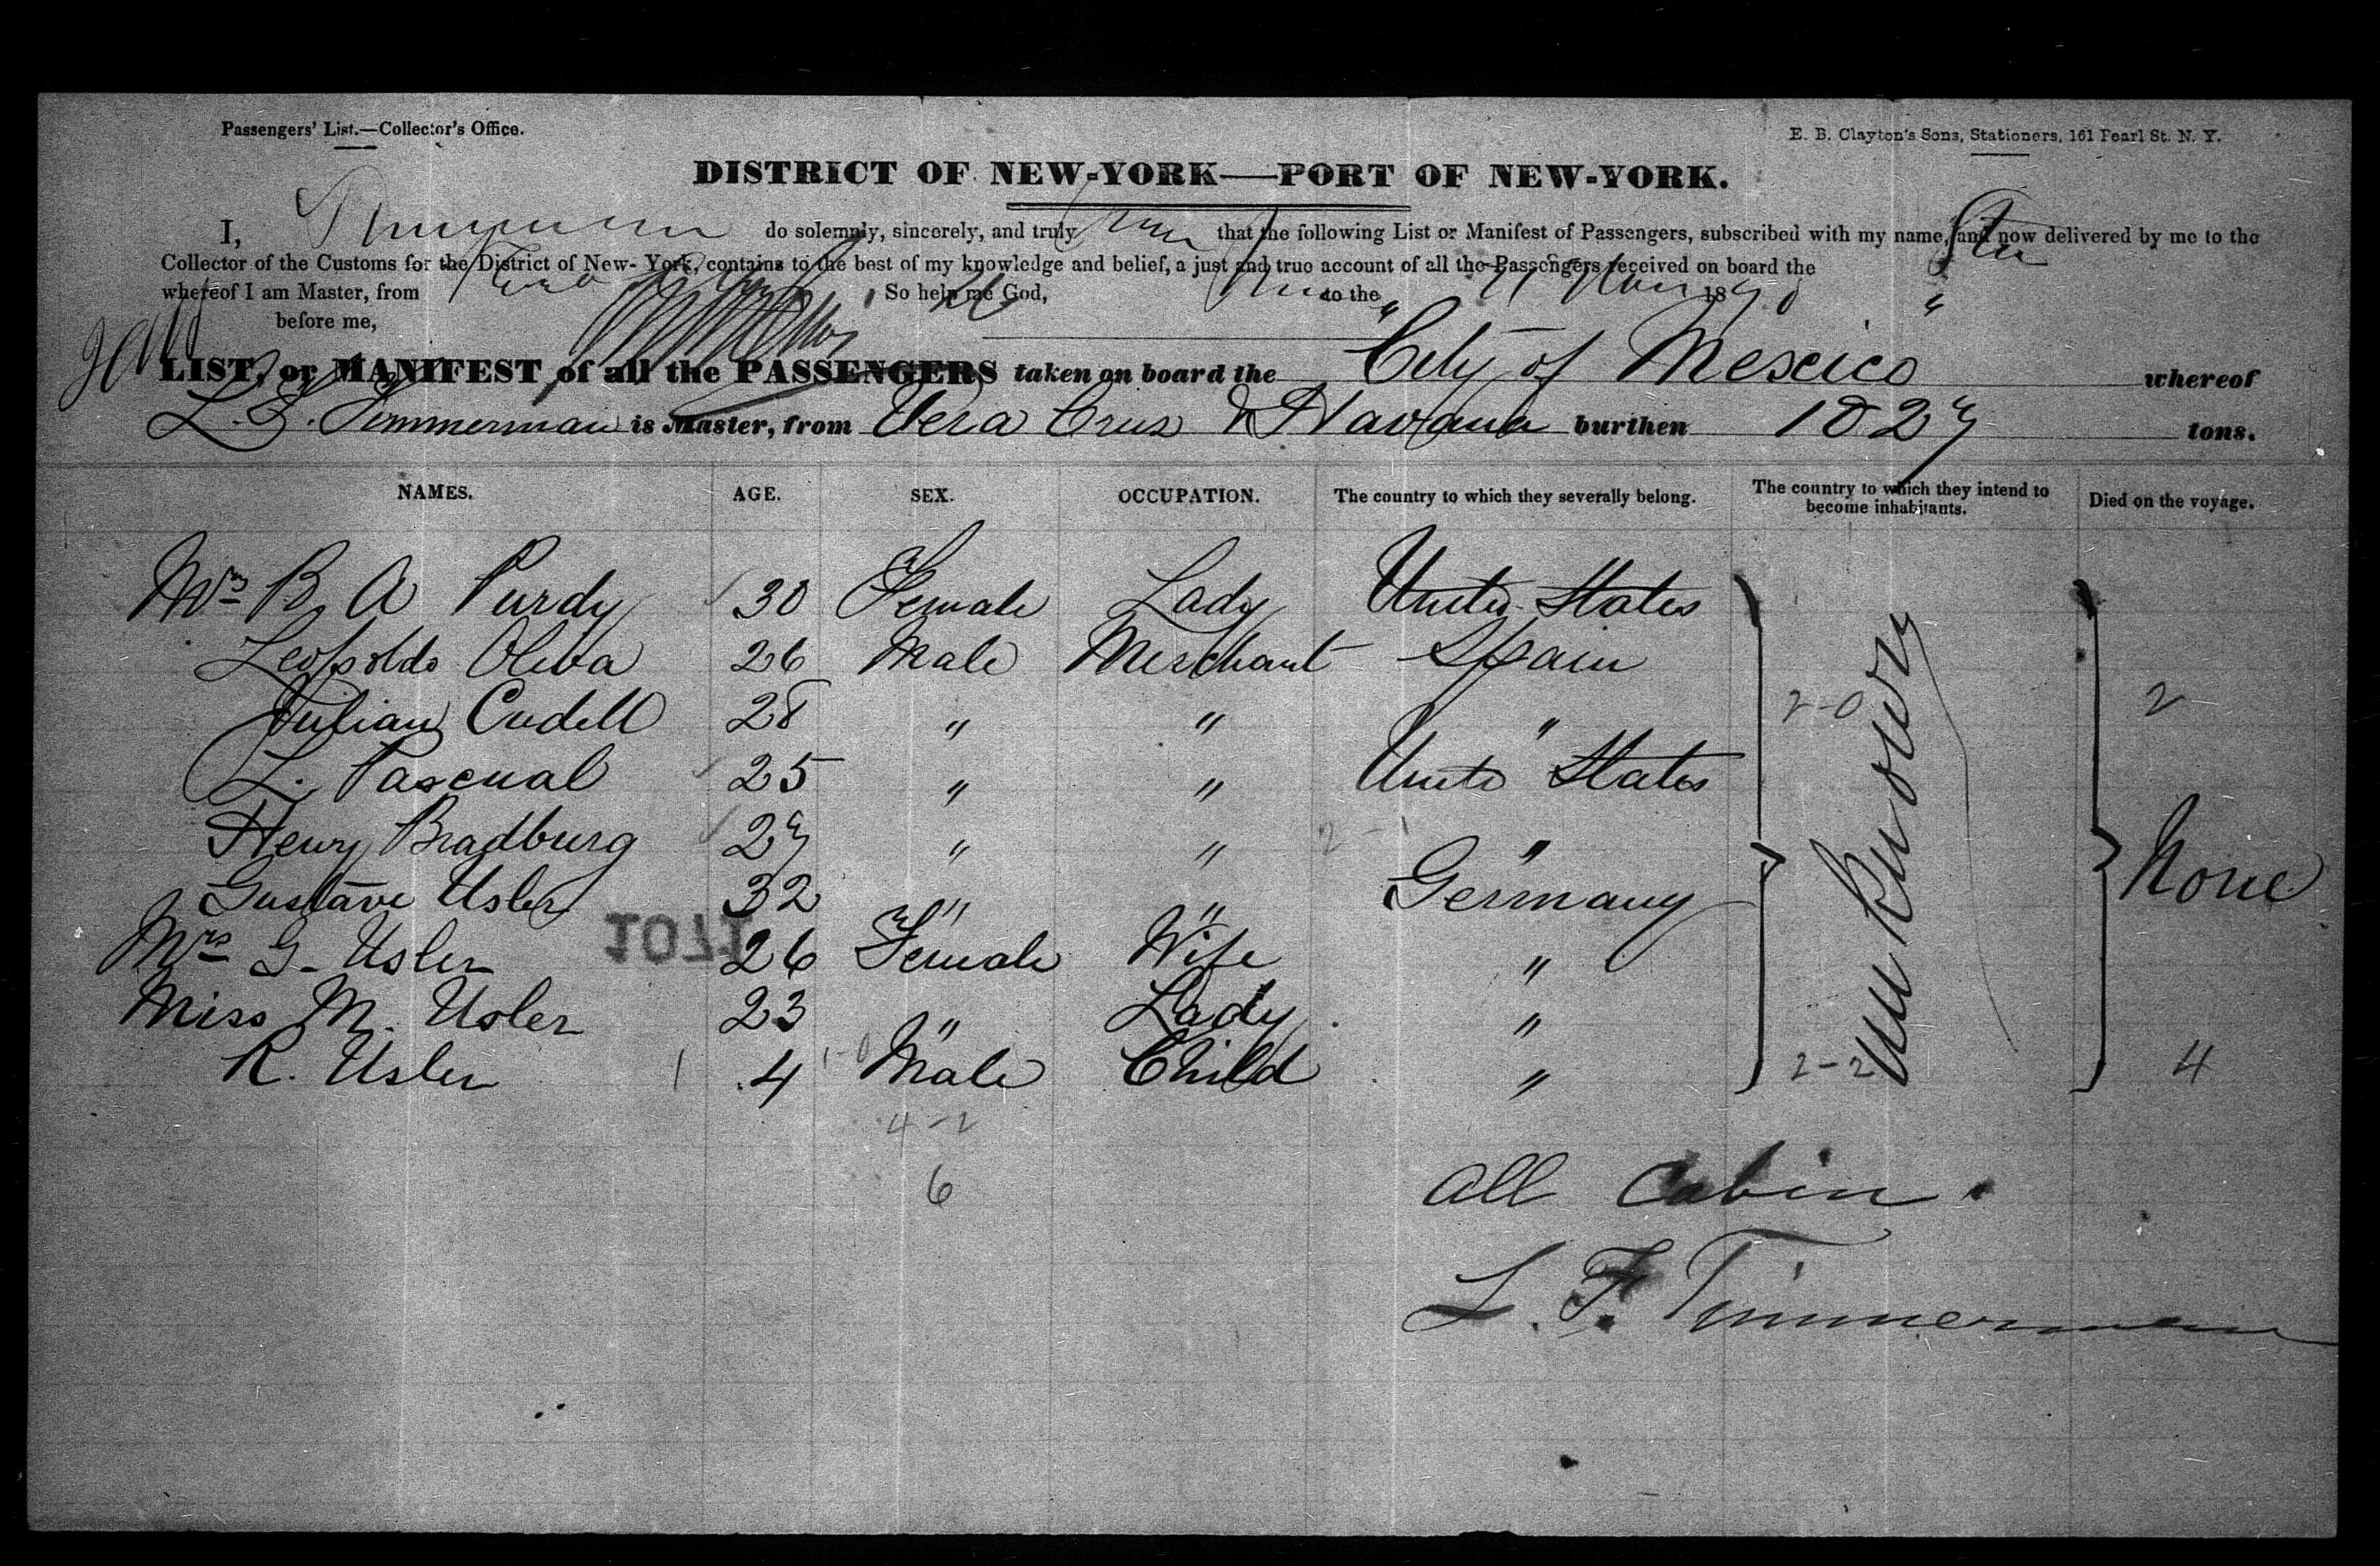 Passengers' List.—Collector's Office.
E. B. Clayton's Sons, Stationers, 161 Pearl St. N. Y.
DISTRICT OF NEW-YORK—PORT OF NEW-YORK.
I, do solemnly, sincerely, and truly that the following List or Manifest of Passengers, subscribed with my name, and now delivered by me to the
Collector of the Customs for the District of New-York, contains to the best of my knowledge and belief, a just and true account of all the Passengers received on board the
whereof I am Master, from So help me God, to the 18
before me,
LIST, or MANIFEST of all the PASSENGERS taken on board the "City of Mexico" whereof
L. F. Timmerman is Master, from Vera Cruz & Havana burthen 1027 tons.
NAMES. AGE. SEX. OCCUPATION. The country to which they severally belong. The country to which they intend to become inhabitants. Died on the voyage.
Mrs B A Purdy 30 Female Lady United States
Leopoldo Oliva 26 Male Merchant Spain
Julian Cudell 28 " " "
L. Pascual 25 " " United States
Henry Bradburg 29 " " "
Gustave Usler 32 " " Germany
Mrs G. Usler 26 Female Wife "
Miss M. Usler 23 " Lady "
R. Usler 4 Male Child "
unknown
None
2-0
2
2-1
1-0
2-2
4
1071
4-2
6
all Cabin.
L. F. Timmerman